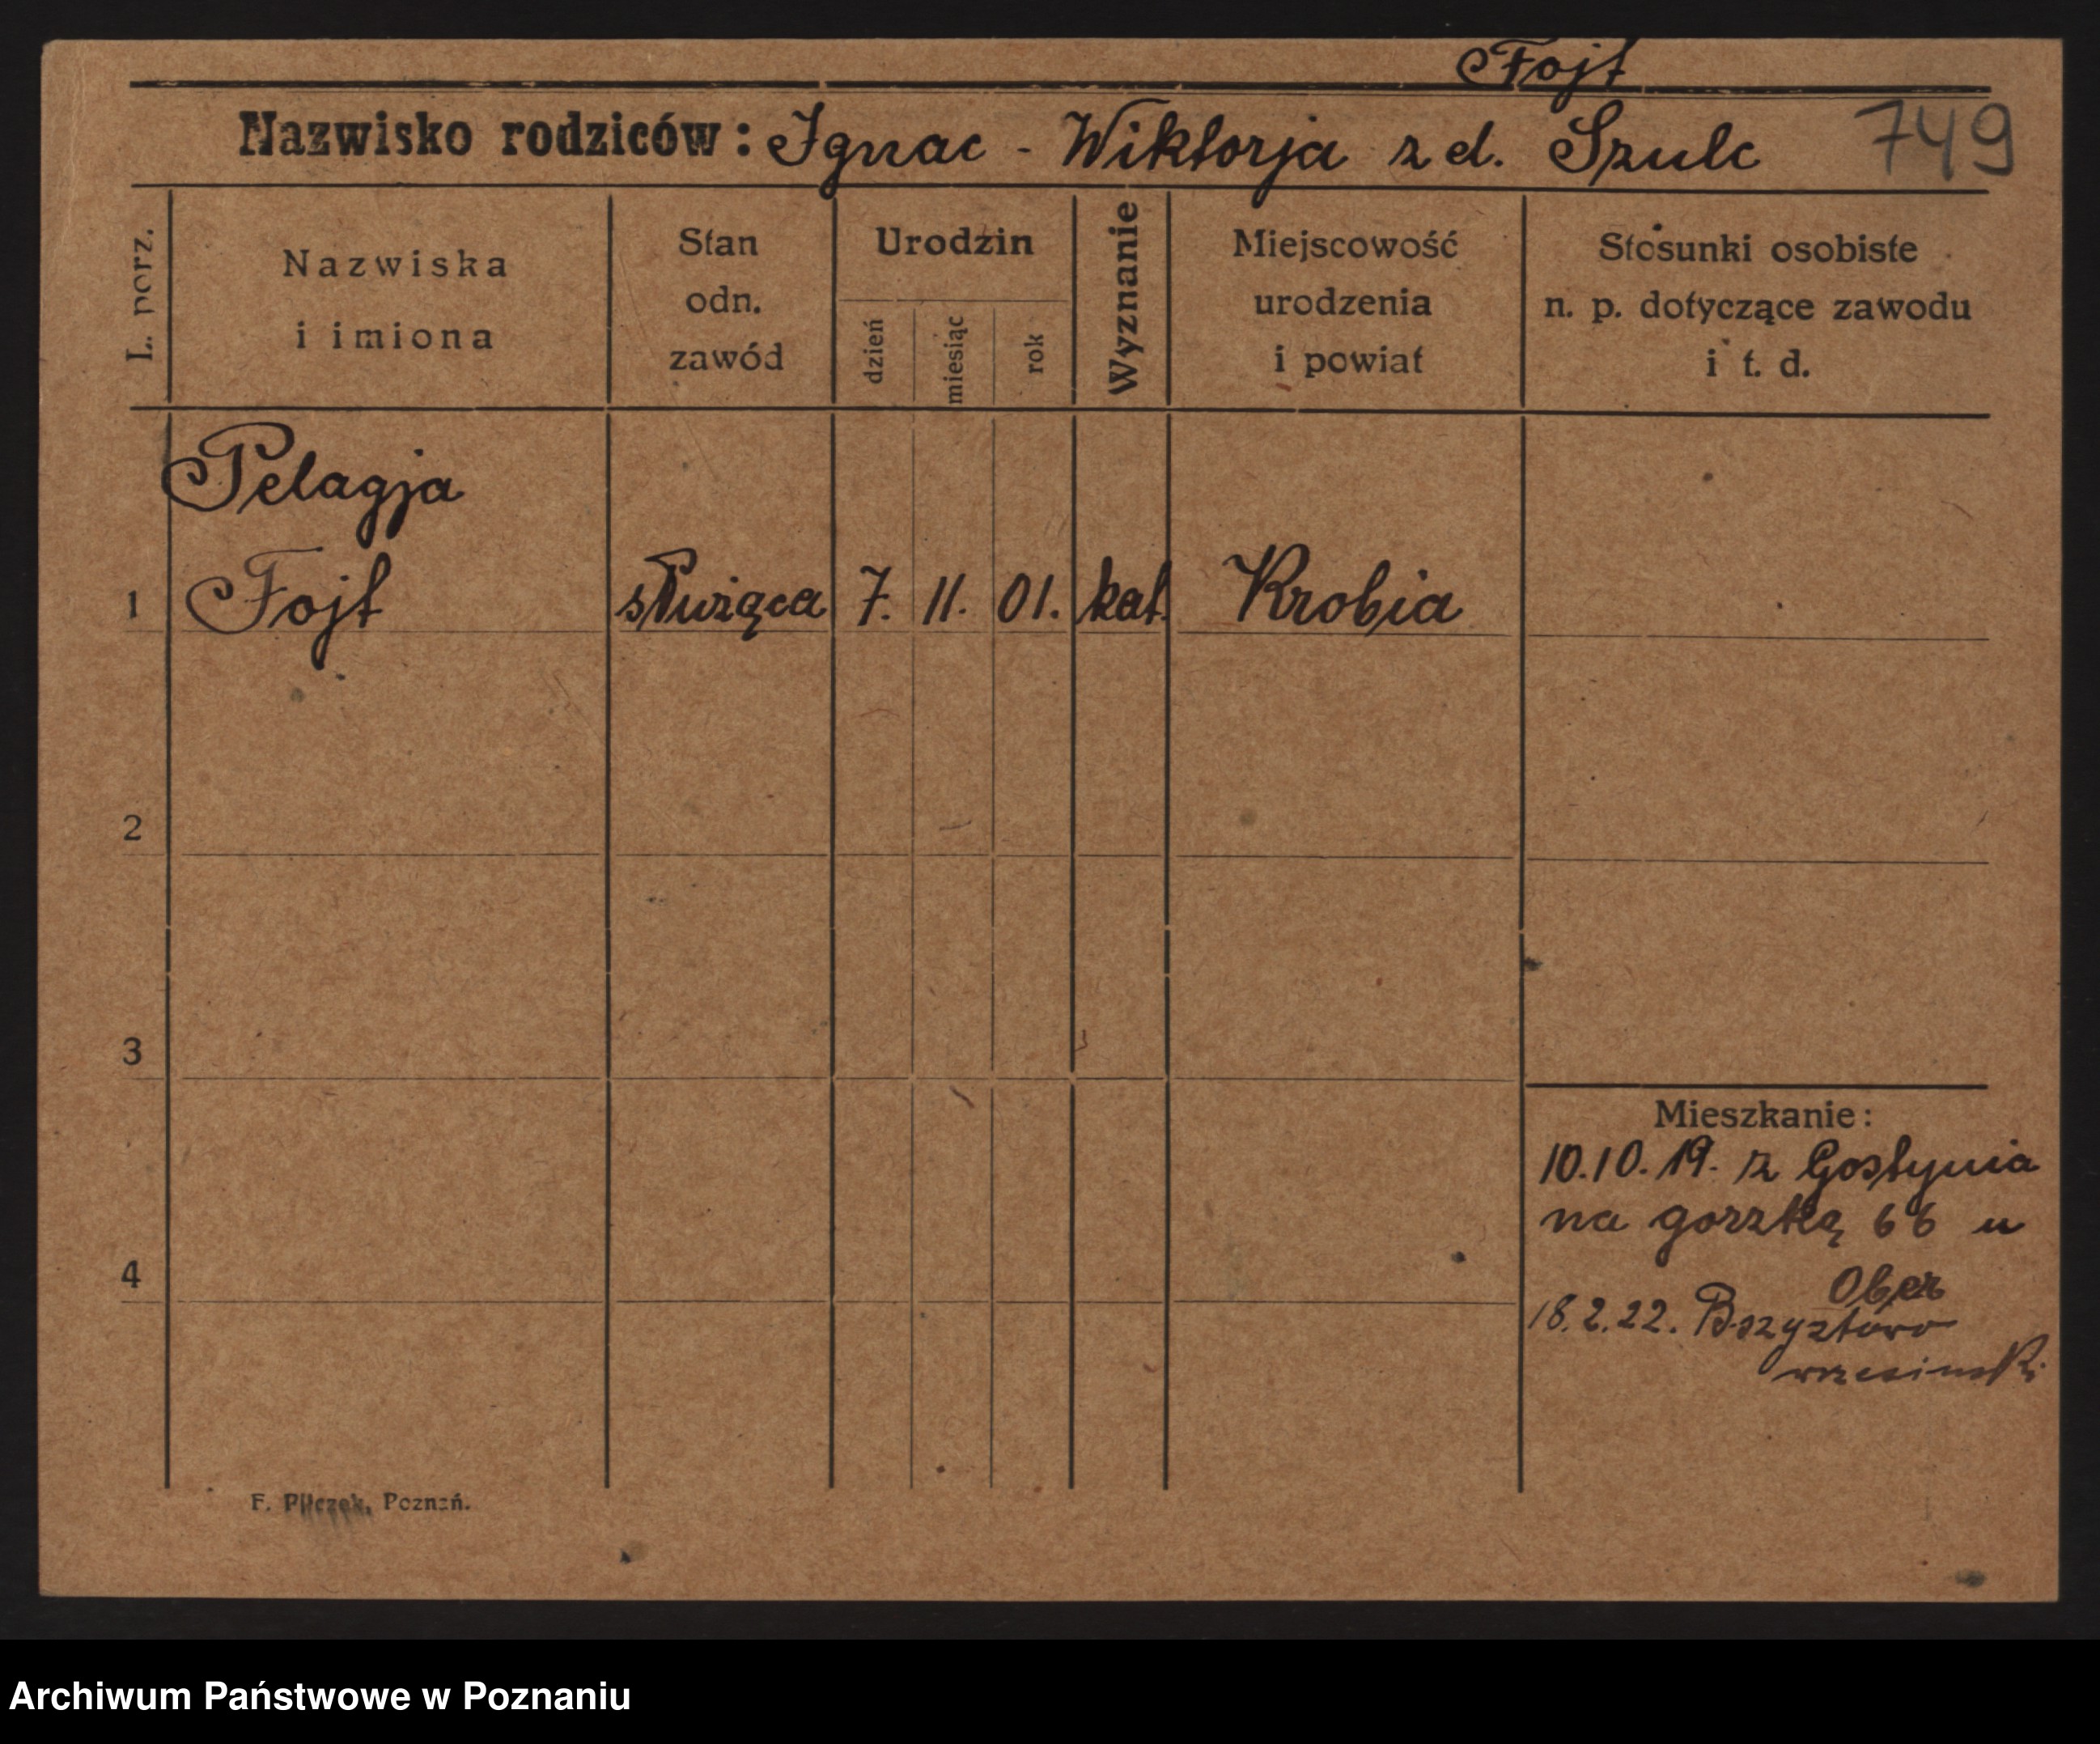 Fojt
Nazwisko rodziców: Ignac - Wiktorja z d. Szulc 749
L. porz.
Nazwiska
i imiona
Stan
odn.
zawód
Urodzin
dzień
miesiąc
rok
Wyznanie
Miejscowość
urodzenia
i powiat
Stosunki osobiste
n. p. dotyczące zawodu
i t. d.
Pelagja
1 Fojt służąca 7. 11. 01. kat. Krobia
2
3
4
Mieszkanie:
10.10.19. z Gostynia
na gorzką 66 u
Ober
18.2.22.
F. Pilczek, Poznań.
Archiwum Państwowe w Poznaniu